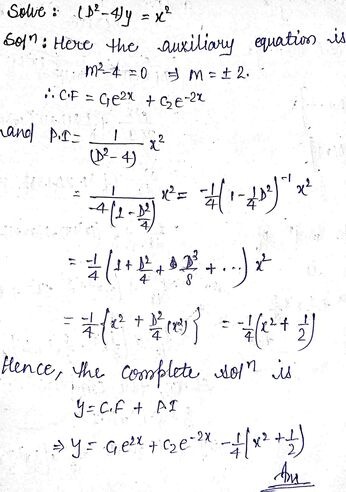 Solve : (D²-4)y = x²
Solⁿ : Here the auxiliary equation is
m²-4 = 0 ⇒ m = ± 2.
∴ C.F = C₁e²ˣ + C₂e⁻²ˣ
and P.I = 1/(D²-4) x²
= 1/(-4(1 - D²/4)) x² = -1/4 (1 - 1/4 D²)⁻¹ x²
= -1/4 (1 + D²/4 + D³/8 + ...) x²
= -1/4 {x² + D²/4 (x²)} = -1/4 (x² + 1/2)
Hence, the complete solⁿ is
y = C.F + P.I
⇒ y = C₁e²ˣ + C₂e⁻²ˣ - 1/4 (x² + 1/2)
Ans